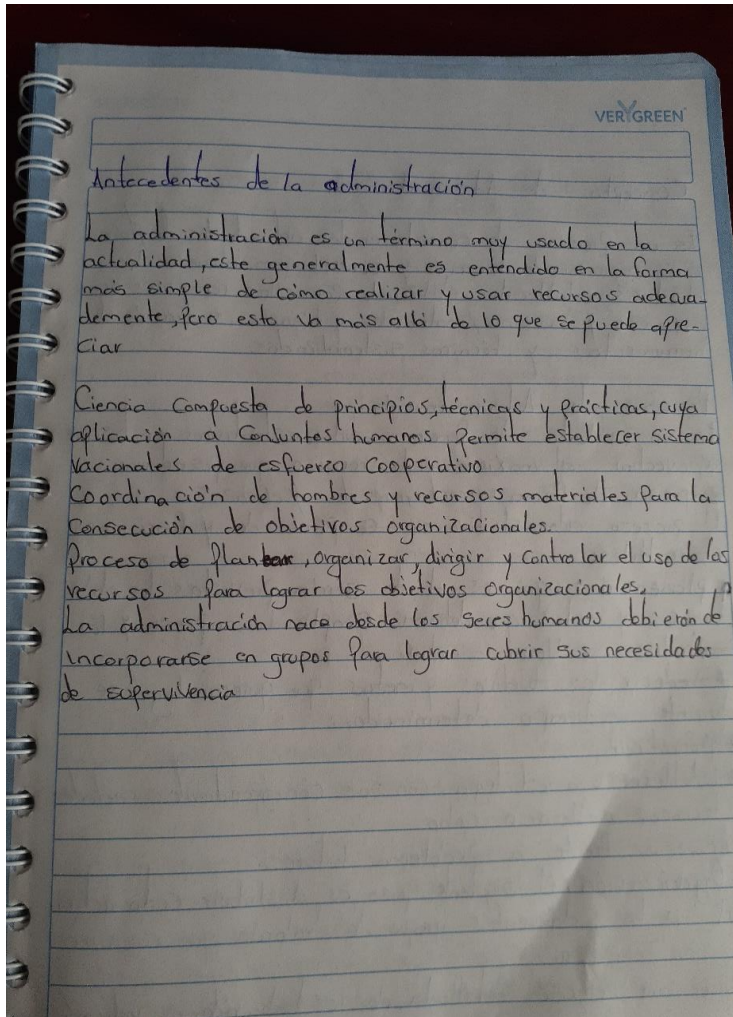 VERYGREEN
Antecedentes de la administración
La administración es un término muy usado en la
actualidad, este generalmente es entendido en la forma
más simple de cómo realizar y usar recursos adecua-
demente, pero esto va más allá de lo que se puede apre-
ciar
Ciencia Compuesta de principios, técnicas y prácticas, cuya
aplicación a Conjuntos humanos permite establecer sistema
nacionales de esfuerzo Cooperativo
Coordinación de hombres y recursos materiales para la
Consecución de objetivos organizacionales.
Proceso de , organizar, dirigir y controlar el uso de los
recursos para lograr los objetivos organizacionales.
La administración nace desde los seres humanos debierón de
incorporarse en grupos para lograr cubrir sus necesidades
de supervivencia